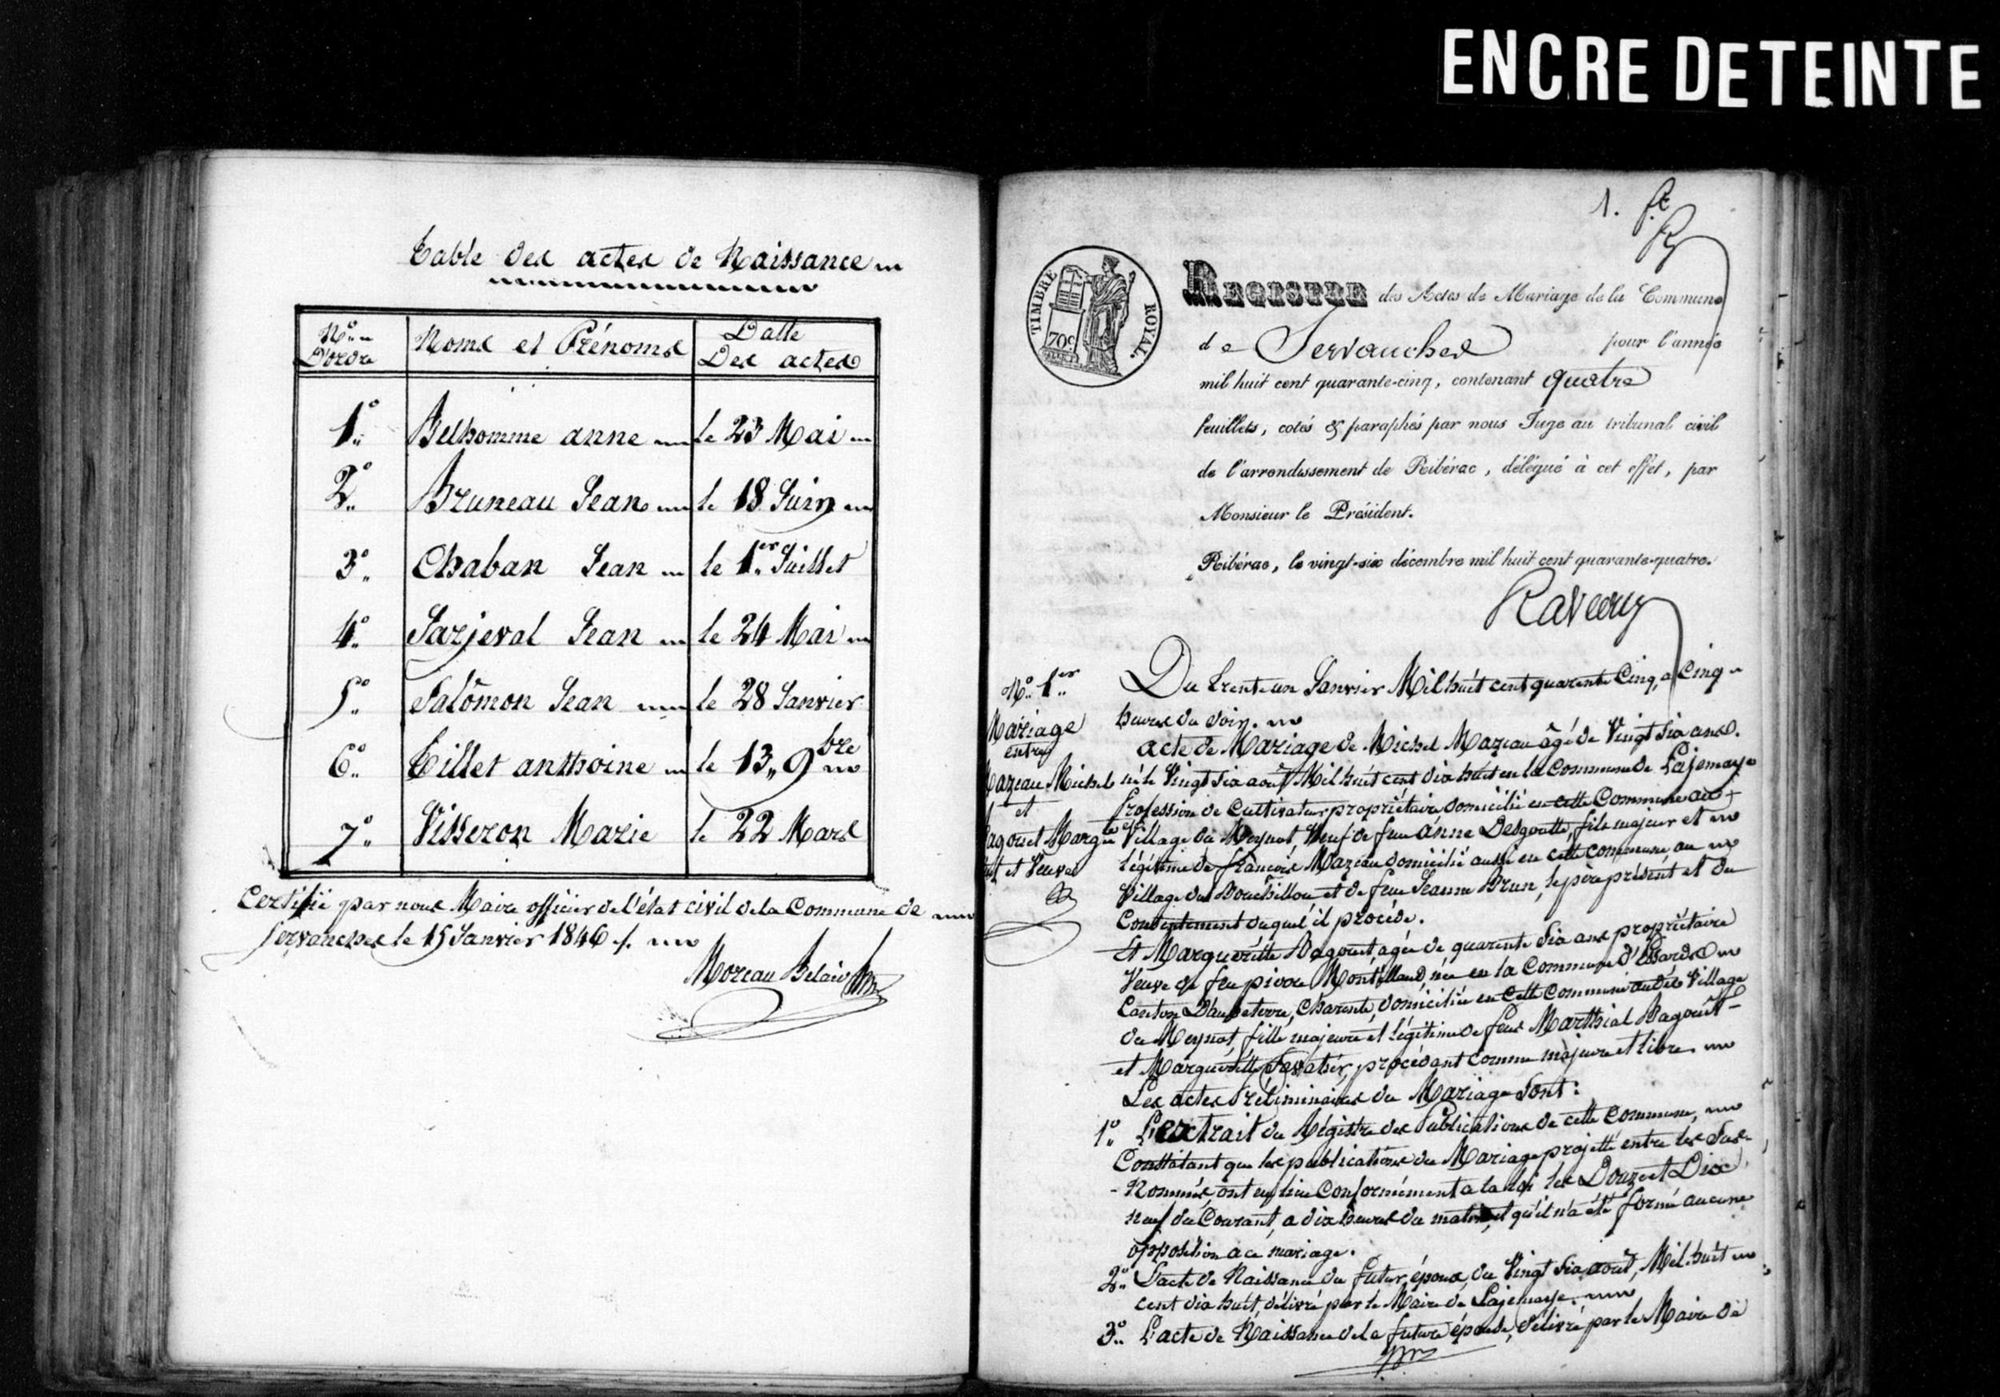 ENCRE DETEINTE
Table des actes de Naissance
Nos D'ordre | Noms et Prénoms | Datte Des actes
1º | Belhomme anne | le 23 Mai
2º | Bruneau Jean | le 18 Juin
3º | Chaban Jean | le 1er Juillet
4º | Sarjeval Jean | le 24 Mai
5º | Salômon Jean | le 28 Janvier
6º | Tillet anthoine | le 13 9bre
7º | Visseron Marie | le 22 Mars
Certifié par nous Maire officier de l'état civil de la Commune de
Servanches le 15 Janvier 1846
Moreau Belair
1. f.
TIMBRE ROYAL.
70c
REGISTRE des Actes de Mariage de la Commune
de Servanches pour l'année
mil huit cent quarante-cinq, contenant quatre
feuillets, cotés & paraphés par nous Juge au tribunal civil
de l'arrondissement de Ribérac, délégué à cet effet, par
Monsieur le Président.
Ribérac, le vingt-six décembre mil huit cent quarante-quatre.
No. 1er
Mariage
entre
Mazeau Michel
et
Ragout Margte
et Veuve
Du trente un Janvier Mil huit cent quarente Cinq, a Cinq
heures du soir.
acte de Mariage de Michel Mazeau âgé de Vingt six ans.
né le Vingt six août Mil huit cent dix huit en la Commune de Lajemaye
Profession de Cultivateur propriétaire domicilié en cette Commune au
Village du Meynot, Veuf de feu anne Desgoutte, fils majeur et
légitime de françois Mazeau domicilié aussi en cette commune au
Village du et de feue Jeanne Brun, le père présent et du
Consentement duquel il procède.
Et Marguéritte Ragout, agée de quarente six ans propriétaire
Veuve de feu pierre Montillaud, née en la Commune d'Essards
Canton D'aubeterre, Charente, domiciliée en Cette Commune audit Village
du Meynot, fille majeure et légitime de feus Marthial Ragout
et Marguéritte Savatier, procédant comme majeure et libre.
Les actes Préliminaires du Mariage sont:
1º L'extrait du Régistre des Publications de cette Commune,
Constatant que les publications du Mariage projetté entre les Sus-
Nommés, ont eu lieu Conformément a la loi les Douze et Dix
neuf du Courant, a dix heures du matin, et qu'il n'a été formé aucune
opposition a ce mariage.
2º L'acte de Naissance du futur époux, du Vingt six août, Mil huit
cent dix huit, délivré par le Maire de Lajemaye.
3º L'acte de Naissance de la future épouse, délivré par le Maire de